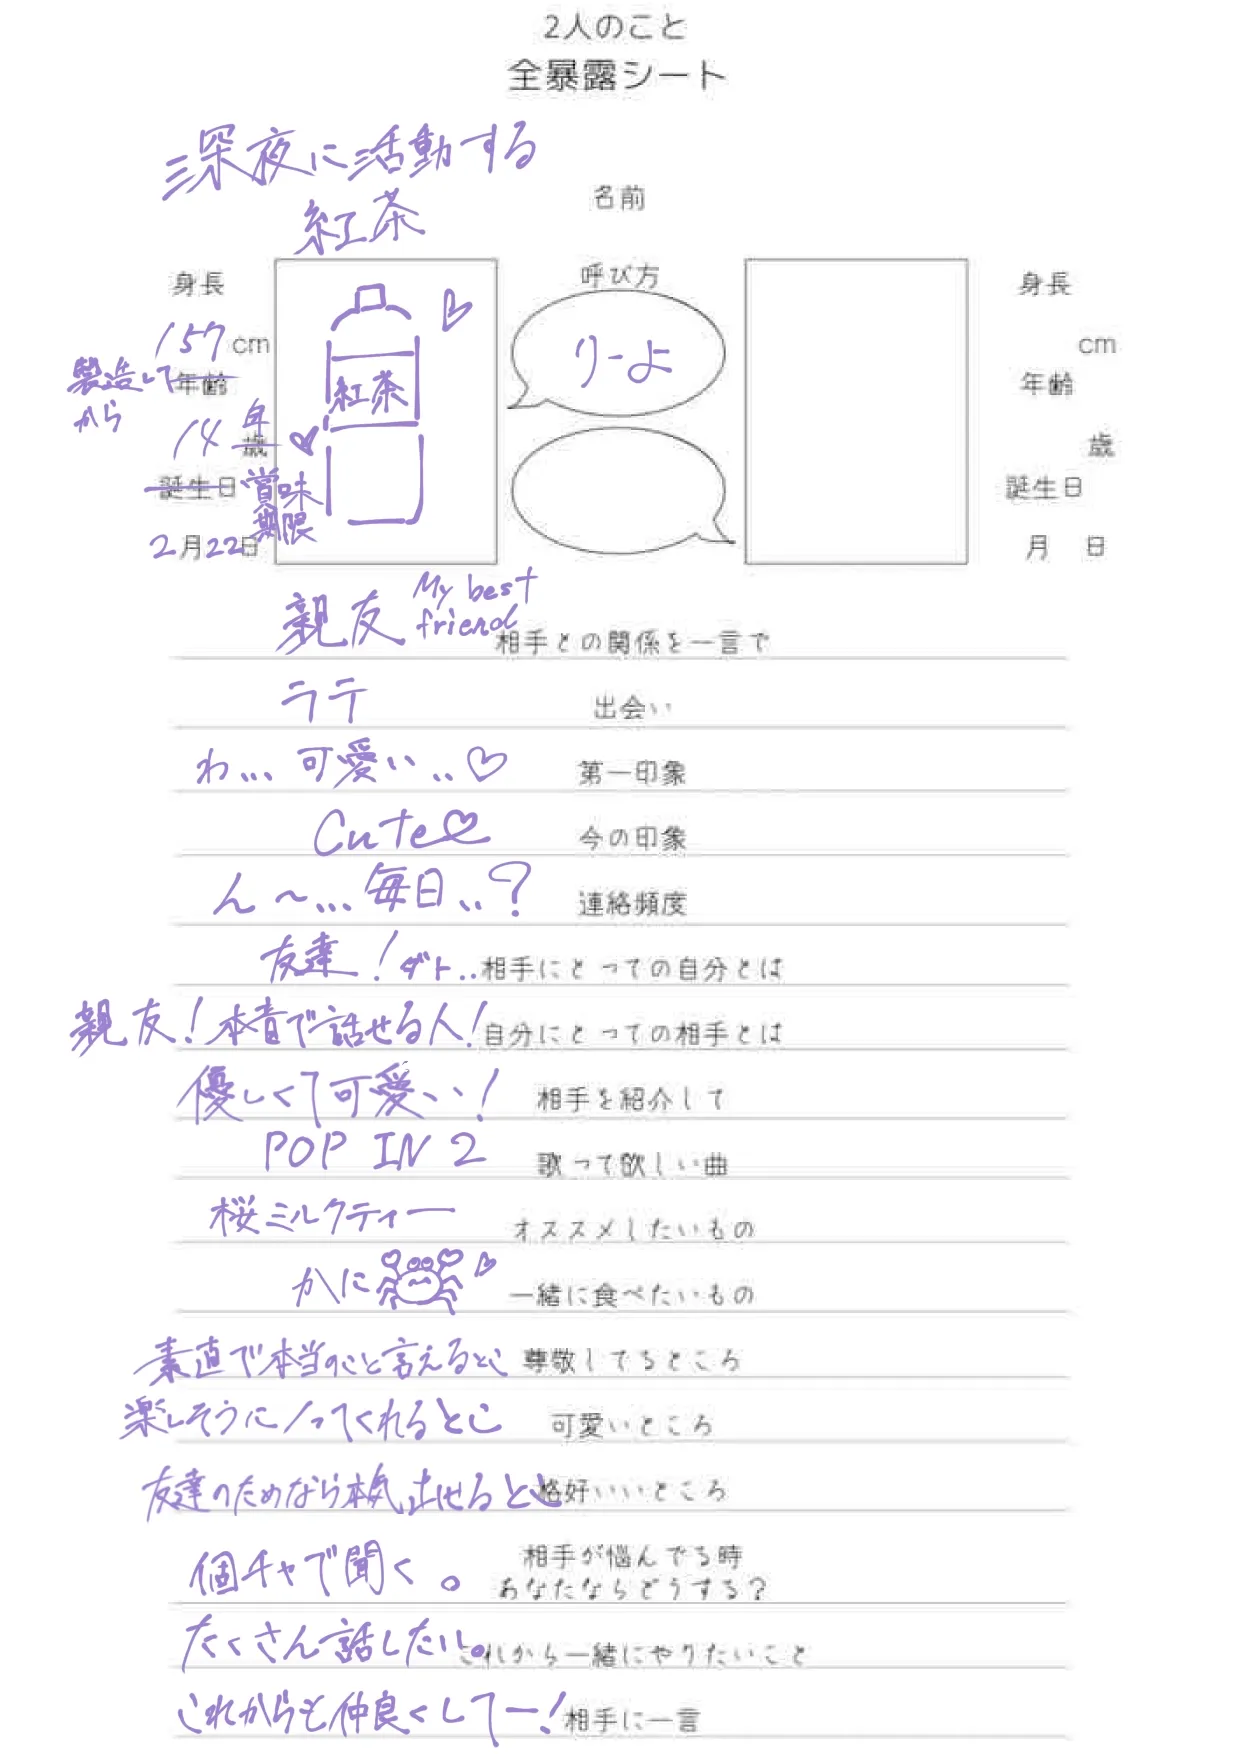 2人のこと
全暴露シート
深夜に活動する
紅茶
名前
身長
157cm
製造してから
年齢
14年
歳
誕生日
賞味
期限
2月22日
紅茶
呼び方
りーよ
身長
cm
年齢
歳
誕生日
月 日
親友 My best friend 相手との関係を一言で
ラテ 出会い
わ...可愛い..♡ 第一印象
Cute♡ 今の印象
ん〜...毎日..? 連絡頻度
友達!ダト.. 相手にとっての自分とは
親友!本音で話せる人! 自分にとっての相手とは
優しくて可愛い! 相手を紹介して
POP IN 2 歌って欲しい曲
桜ミルクティー オススメしたいもの
かに 一緒に食べたいもの
素直で本当のこと言えるとこ 尊敬してるところ
楽しそうにノってくれるとこ 可愛いところ
友達のためなら本気出せるとこ 格好いいところ
個チャで聞く。 相手が悩んでる時
あなたならどうする?
たくさん話したい。 これから一緒にやりたいこと
これからも仲良くしてー! 相手に一言